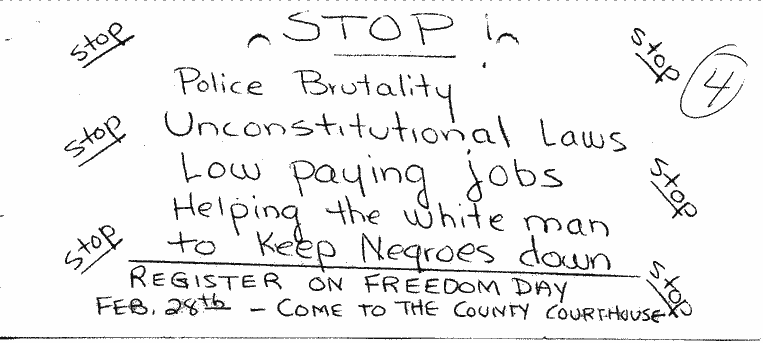 STOP!
stop
stop
4
Police Brutality
stop
Unconstitutional Laws
Low paying jobs
stop
Helping the white man
stop
to Keep Negroes down
stop
REGISTER ON FREEDOM DAY
FEB. 28th - COME TO THE COUNTY COURTHOUSE